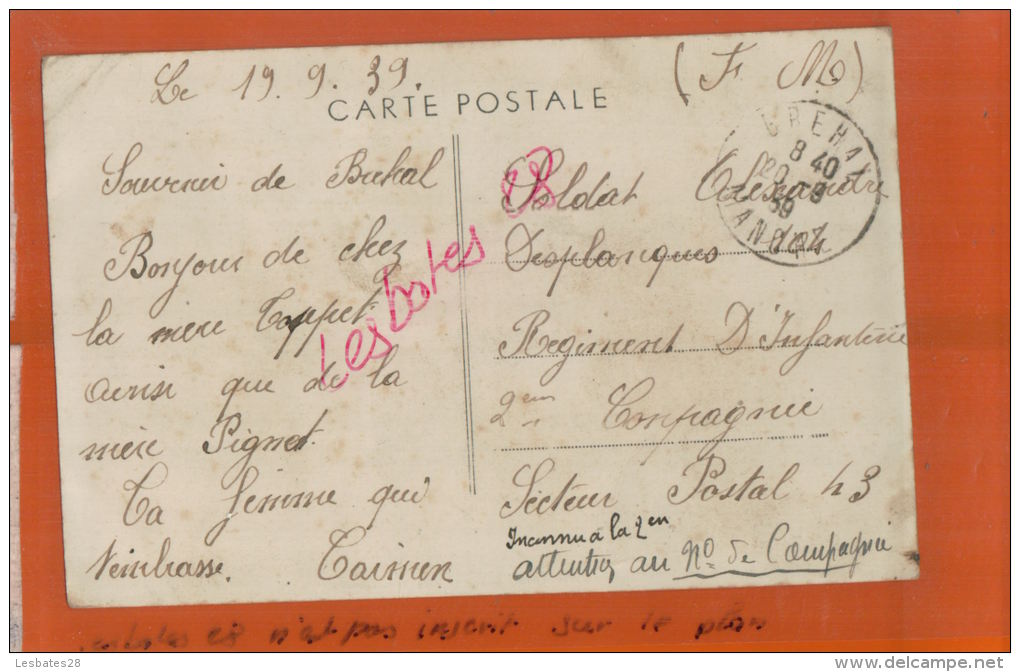 Le 19.9.39.
(F M)
CARTE POSTALE
BREHAL
8 40
20 - 9
39
MANCHE
Souvenir de Brehal
Bonjour de chez
la mère Toppet
ainsi que de la
mère Pignet.
Ta femme qui
t'embrasse. Carmen
Soldat Alexandre
Desplanques
Regiment D'Infanterie
2em Conpagnie
Secteur Postal 43
Inconnu à la 2em
attention au No de Compagnie
Lesbates 28
lesbates 28 n'est pas inscrit sur le plan
Lesbates28
www.delcampe.net